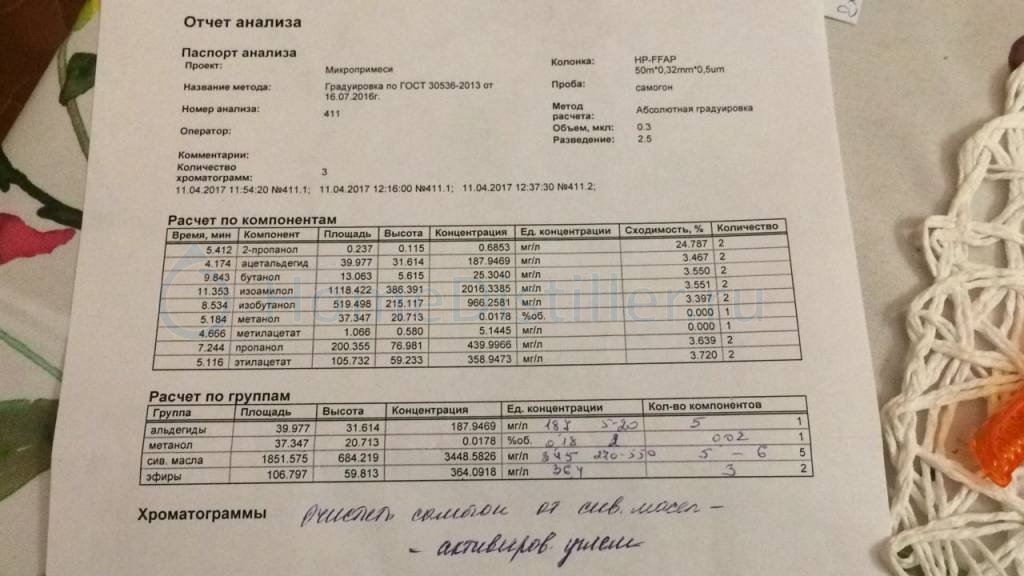 Отчет анализа
Паспорт анализа
Проект: Микропримеси Колонка: HP-FFAP 50m*0,32mm*0,5um
Название метода: Градуировка по ГОСТ 30536-2013 от 16.07.2016г. Проба: самогон
Номер анализа: 411 Метод расчета: Абсолютная градуировка
Оператор: Объем, мкл: 0.3
Разведение: 2.5
Комментарии:
Количество хроматограмм: 3
11.04.2017 11:54:20 №411.1; 11.04.2017 12:16:00 №411.1; 11.04.2017 12:37:30 №411.2;
Расчет по компонентам
Время, мин Компонент Площадь Высота Концентрация Ед. концентрации Сходимость, % Количество
5.412 2-пропанол 0.237 0.115 0.6853 мг/л 24.787 2
4.174 ацетальдегид 39.977 31.614 187.9469 мг/л 3.467 2
9.843 бутанол 13.063 5.615 25.3040 мг/л 3.550 2
11.353 изоамилол 1118.422 386.391 2016.3385 мг/л 3.551 2
8.534 изобутанол 519.498 215.117 966.2581 мг/л 3.397 2
5.184 метанол 37.347 20.713 0.0178 %об. 0.000 1
4.666 метилацетат 1.066 0.580 5.1445 мг/л 0.000 1
7.244 пропанол 200.355 76.981 439.9966 мг/л 3.639 2
5.116 этилацетат 105.732 59.233 358.9473 мг/л 3.720 2
HomeDistiller.ru
Расчет по группам
Группа Площадь Высота Концентрация Ед. концентрации Кол-во компонентов
альдегиды 39.977 31.614 187.9469 мг/л 187 5-20 5 1
метанол 37.347 20.713 0.0178 %об. 002 1
сив. масла 1851.575 684.219 3448.5826 мг/л 5 - 6 5
эфиры 106.797 59.813 364.0918 мг/л 364 3 2
Хроматограммы Очистить самогон от сив. масел -
- активиров. углем